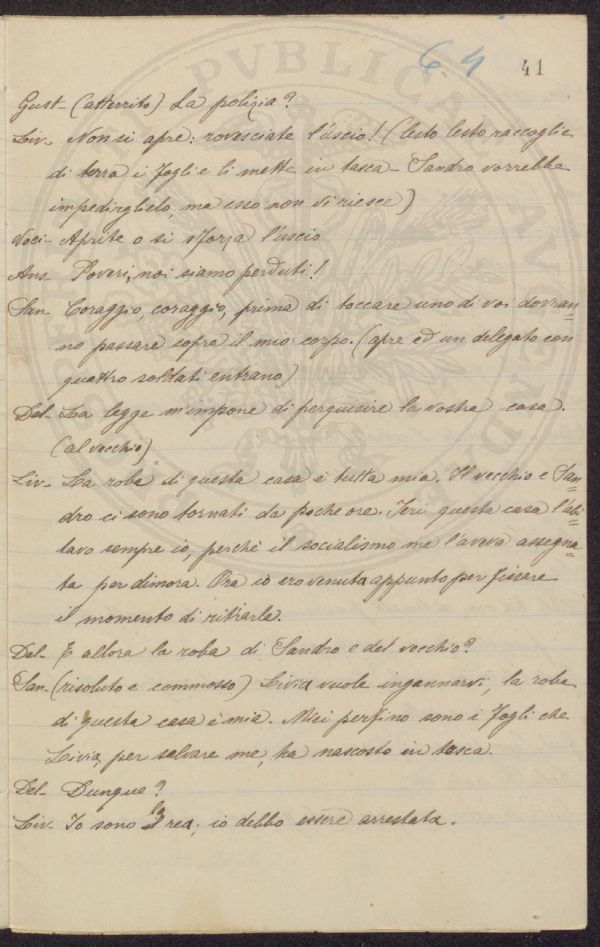 64 41
Gust- (atterrito) La polizia?
Liv- Non si apre: rovesciate l'uscio! (lesto lesto raccoglie
di terra i fogli e li mette in tasca - Sandro vorrebbe
impedirglielo, ma esso non vi riesce)
Voci- Aprite o si sforza l'uscio
Ans- Poveri, noi siamo perduti!
San- Coraggio, coraggio, prima di toccare uno di voi dovran=
no passare sopra il mio corpo. (apre ed un delegato con
quattro soldati entrano)
Del- La legge m'impone di perquisire la vostra casa.
(al vecchio)
Liv- La roba di questa casa è tutta mia. Il vecchio e San=
dro ci sono tornati da poche ore. Ieri questa casa l'abi=
tavo sempre io, perchè il socialismo me l'aveva assegna=
ta per dimora. Ora io ero venuta appunto per fissare
il momento di ritirarla.
Del- E allora la roba di Sandro e del vecchio?
San- (risoluto e commosso) Livia vuole ingannarvi, la roba
di questa casa è mia. Miei perfino sono i fogli che
Livia, per salvare me, ha nascosto in tasca.
Del- Dunque?
Liv- Io sono la rea; io debbo essere arrestata.